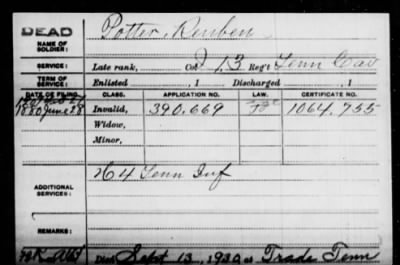 DEAD
NAME OF
SOLDIER:
Potter, Reuben
SERVICE:
Late rank, Co. I 13 Reg't Tenn Cav
TERM OF
SERVICE:
Enlisted , 1 Discharged , 1
DATE OF FILING. CLASS. APPLICATION NO. LAW. CERTIFICATE NO.
1880 June 28 Invalid, 390.669 1064.755
Widow,
Minor,
ADDITIONAL
SERVICES:
64 Tenn Inf
REMARKS:
Died Sept 13, 1930, at Trade Tenn